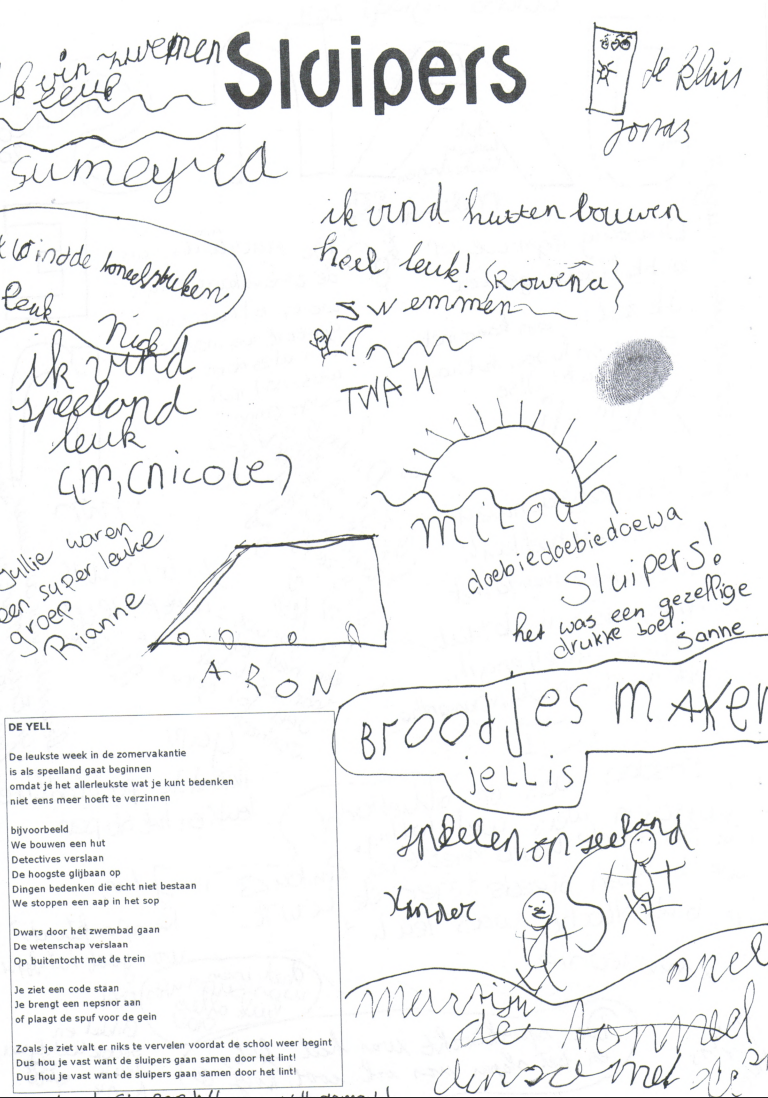 Sluipers
ik vin zwemen
leuk
de kluis
Jonas
Sumeyra
ik vind hutten bouwen
heel leuk! {Rowena}
k vindde toneelstuken
leuk.
Nick
swemmen
TWAN
ik vind
speeland
leuk
(nicole)
milou
Jullie waren
een super leuke
groep
Rianne
doebiedoebiedoewa
Sluipers!
het was een gezellige
drukke boel.
Sanne
ARON
Broodjes maken
jellis
DE YELL
De leukste week in de zomervakantie
is als speelland gaat beginnen
omdat je het allerleukste wat je kunt bedenken
niet eens meer hoeft te verzinnen
bijvoorbeeld
We bouwen een hut
Detectives verslaan
De hoogste glijbaan op
Dingen bedenken die echt niet bestaan
We stoppen een aap in het sop
Dwars door het zwembad gaan
De wetenschap verslaan
Op buitentocht met de trein
Je ziet een code staan
Je brengt een nepsnor aan
of plaagt de spuf voor de gein
Zoals je ziet valt er niks te vervelen voordat de school weer begint
Dus hou je vast want de sluipers gaan samen door het lint!
Dus hou je vast want de sluipers gaan samen door het lint!
op
Xander
spel
martijn
de